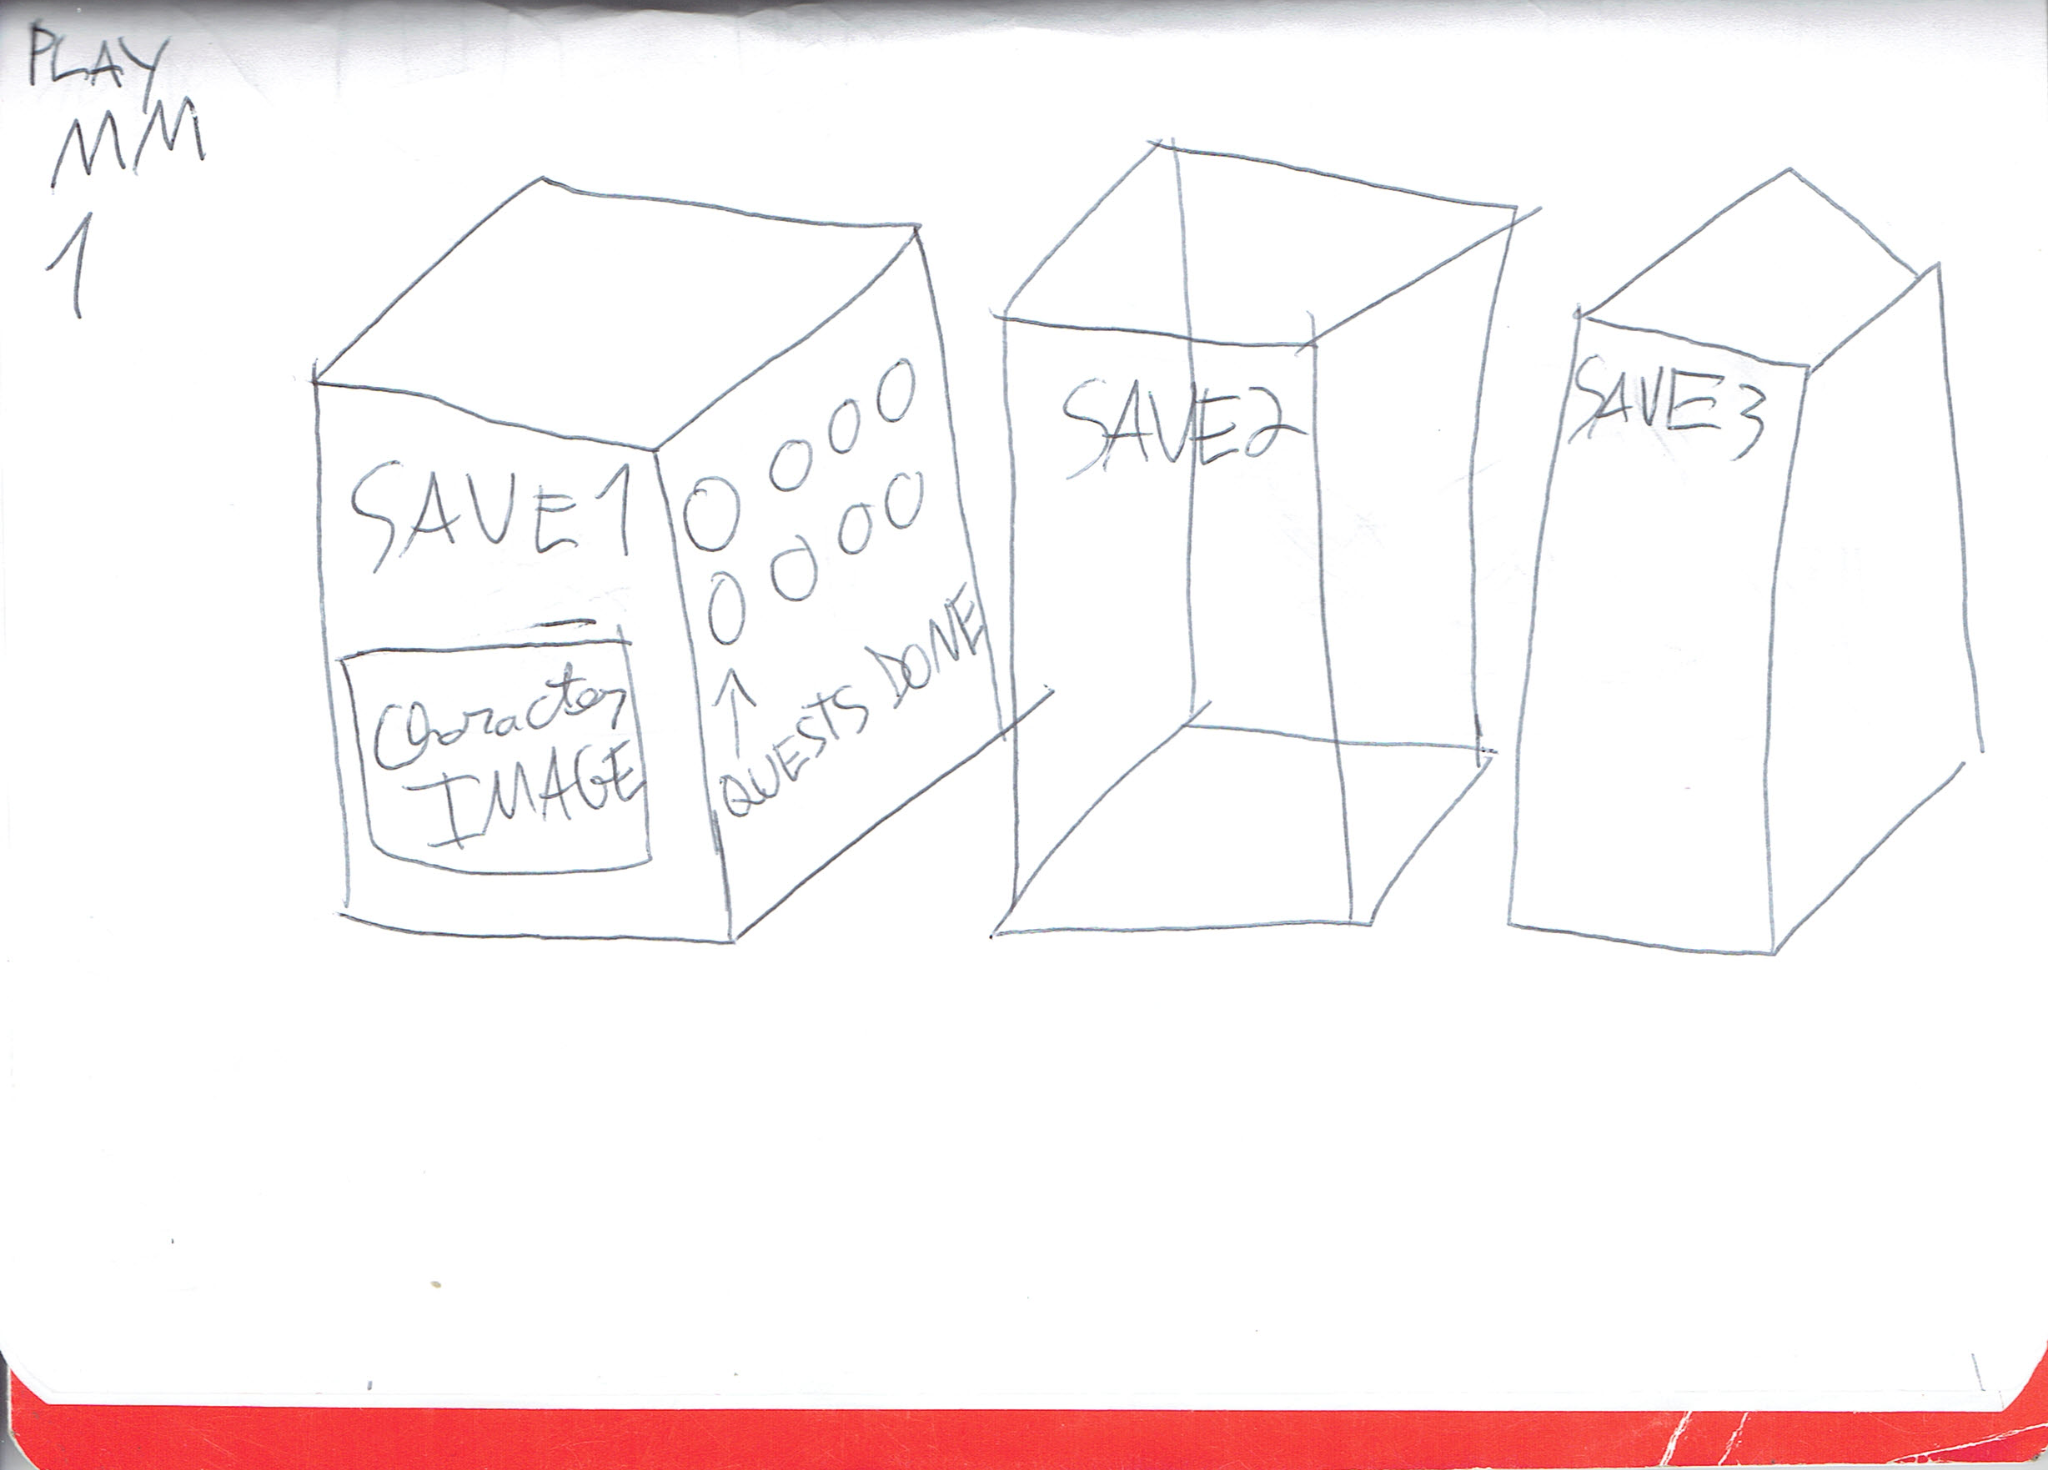 PLAY
MM
1
SAVE1
Character
IMAGE
↑
QUESTS DONE
SAVE2
SAVE3